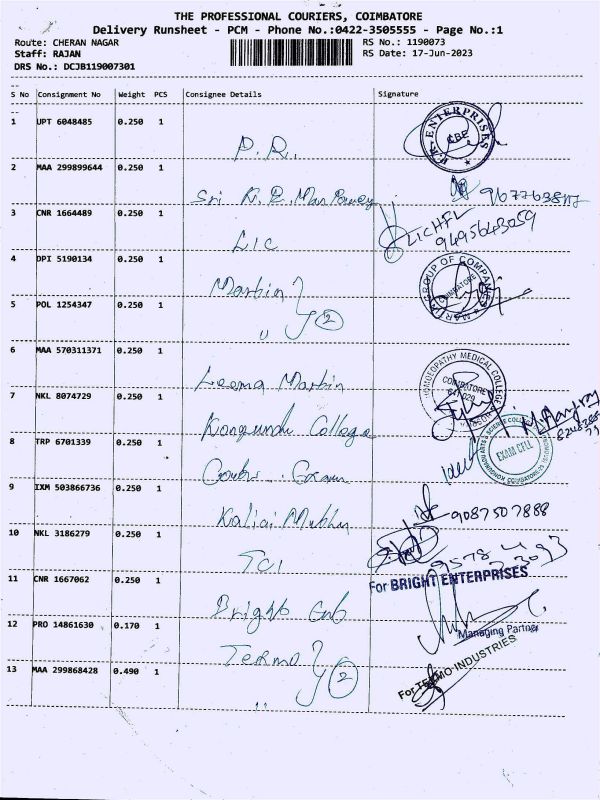 THE PROFESSIONAL COURIERS, COIMBATORE
Delivery Runsheet - PCM - Phone No.:0422-3505555 - Page No.:1
Route: CHERAN NAGAR RS No.: 1190073
Staff: RAJAN RS Date: 17-Jun-2023
DRS No.: DCJB119007301
S No Consignment No Weight PCS Consignee Details Signature
1 UPT 6048485 0.250 1
P.R. ENTERPRISES CBE
2 MAA 299899644 0.250 1
Sri
3 CNR 1664489 0.250 1
LIC LICHFL 9495643059
4 DPI 5190134 0.250 1
Martin GROUP OF COMPANIES COIMBATORE
5 POL 1254347 0.250 1
" 2
6 MAA 570311371 0.250 1
Leema Martin HOMOEOPATHY MEDICAL COLLEGE COIMBATORE
7 NKL 8074729 0.250 1
Kongundu College
8 TRP 6701339 0.250 1
EXAM CELL
9 IXM 503866736 0.250 1
Kaliai Muthu 9087507888
10 NKL 3186279 0.250 1
TCI
11 CNR 1667062 0.250 1
For BRIGHT ENTERPRISES
Bright
12 PRO 14861630 0.170 1
Managing Partner
Termo
13 MAA 299868428 0.490 1
" 2
For TERMO INDUSTRIES